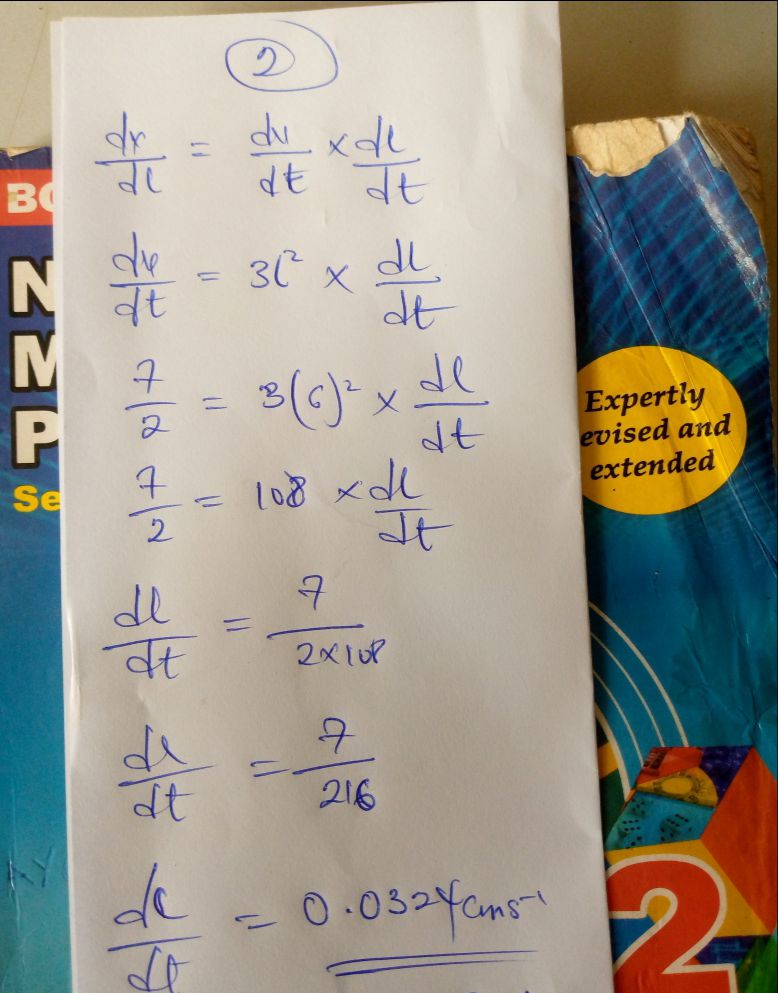 2
dv/dl = dv/dt × dl/dt
dv/dt = 3l² × dl/dt
7/2 = 3(6)² × dl/dt
7/2 = 108 × dl/dt
dl/dt = 7/2×108
dl/dt = 7/216
dl/dt = 0.0324cms⁻¹
BO
N
M
P
Se
Expertly
evised and
extended
2